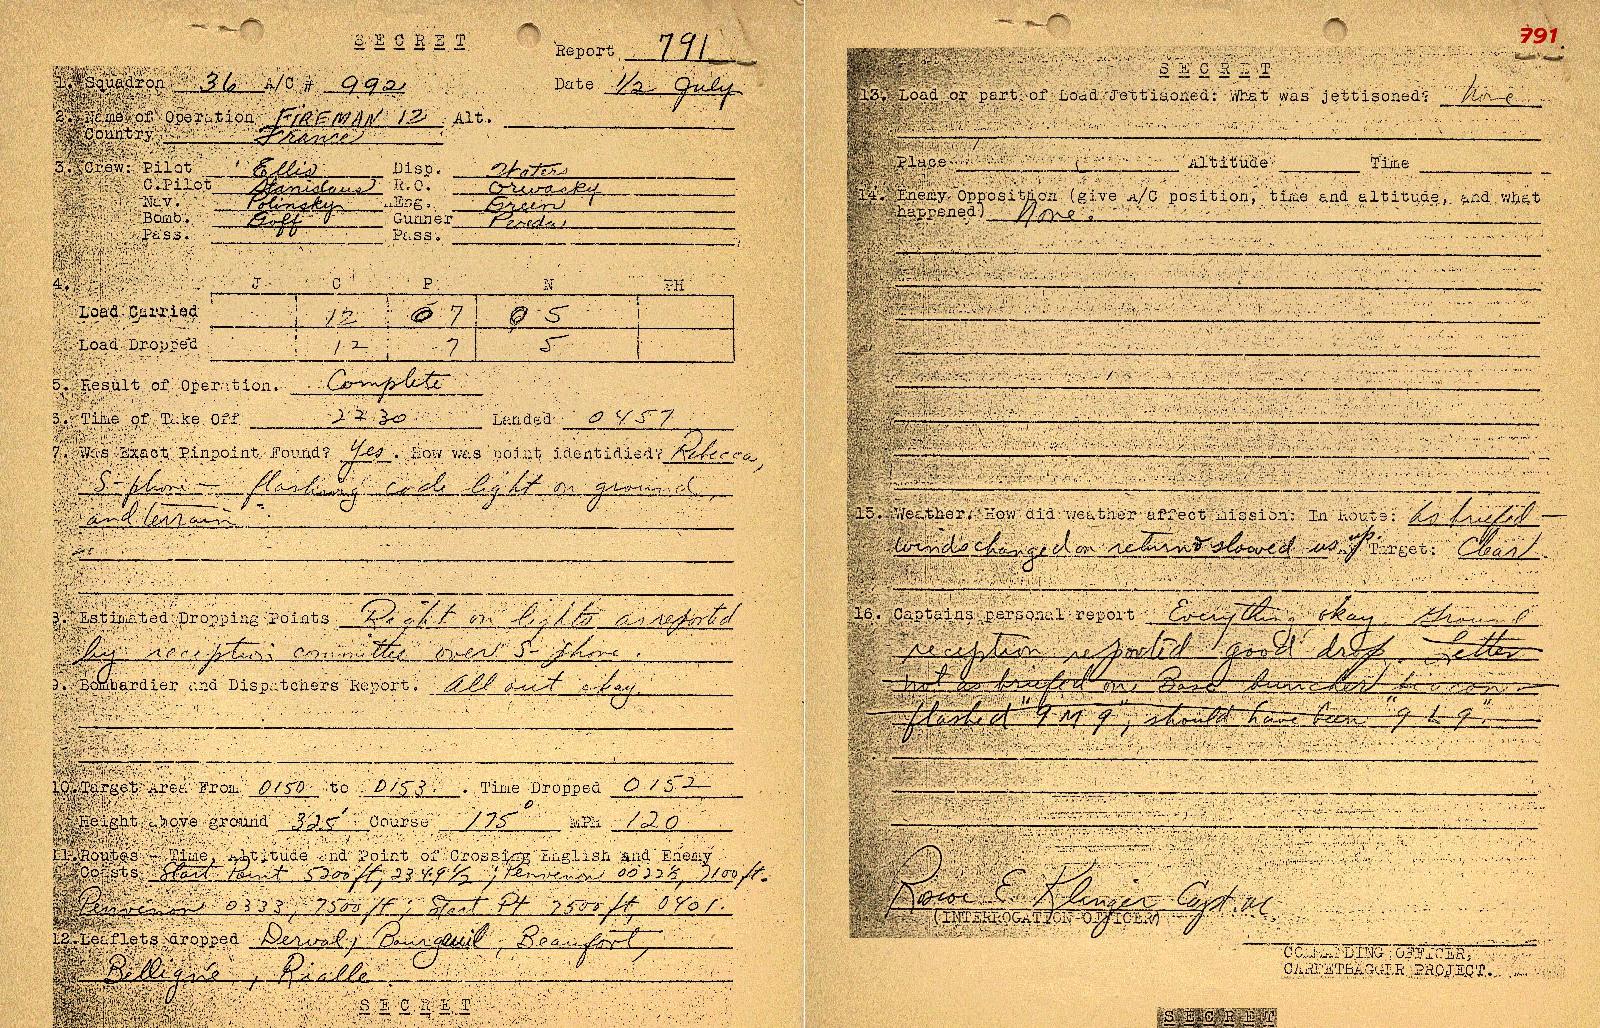 SECRET
Report 791
1. Squadron 36 A/C # 992 Date 1/2 July
2. Name of Operation FIREMAN 12 Alt.
Country France
3. Crew: Pilot Ellis Disp. Waters
C.Pilot Stanislaus R.O. Orwosky
Nav. Polinsky Eng. Green
Bomb. Goff Gunner
Pass. Pass.
4. J C P N PH
Load Carried 12 7 5
Load Dropped 12 7 5
5. Result of Operation. Complete
6. Time of Take Off 2230 Landed 0457
7. Was Exact Pinpoint Found? Yes. How was point identidied? Rebecca,
S-phone - flashing code light on ground,
and terrain
8. Estimated Dropping Points Right on lights as reported
by reception committee over S-phone.
9. Bombardier and Dispatchers Report. All out okay.
10. Target Area From 0150 to 0153. Time Dropped 0152
Height above ground 325' Course 175° MPH 120
11. Routes - Time, Altitude and Point of Crossing English and Enemy
Coasts Start Point 5200 ft, 2349½; Penvenon 0022½, 7100 ft.
Penvenon 0333, 7500 ft; Start Pt 7500 ft, 0401.
12. Leaflets dropped Derval, Bourgueil, Beaufort,
Belligné, Rialle.
SECRET
791
SECRET
13. Load or part of Load Jettisoned: What was jettisoned? None
Place Altitude Time
14. Enemy Opposition (give A/C position, time and altitude, and what
happened) None.
15. Weather. How did weather affect mission: In Route: As briefed -
winds changed on return & slowed us up. Target: Clear
16. Captains personal report Everything okay. Ground
reception reported good drop. Letter
not as briefed on Base buncher beacon -
flashed "9 M 9", should have been "9 L 9".
Roscoe E Klinger Capt. AC
(INTERROGATION OFFICER)
COMMANDING OFFICER,
CARPETBAGGER PROJECT.
SECRET